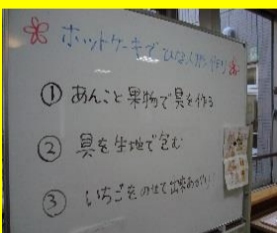 ホットケーキでひな人形作り
① あんこと果物で具を作る
② 具を生地で包む
③ いちごをのせて出来あがり!